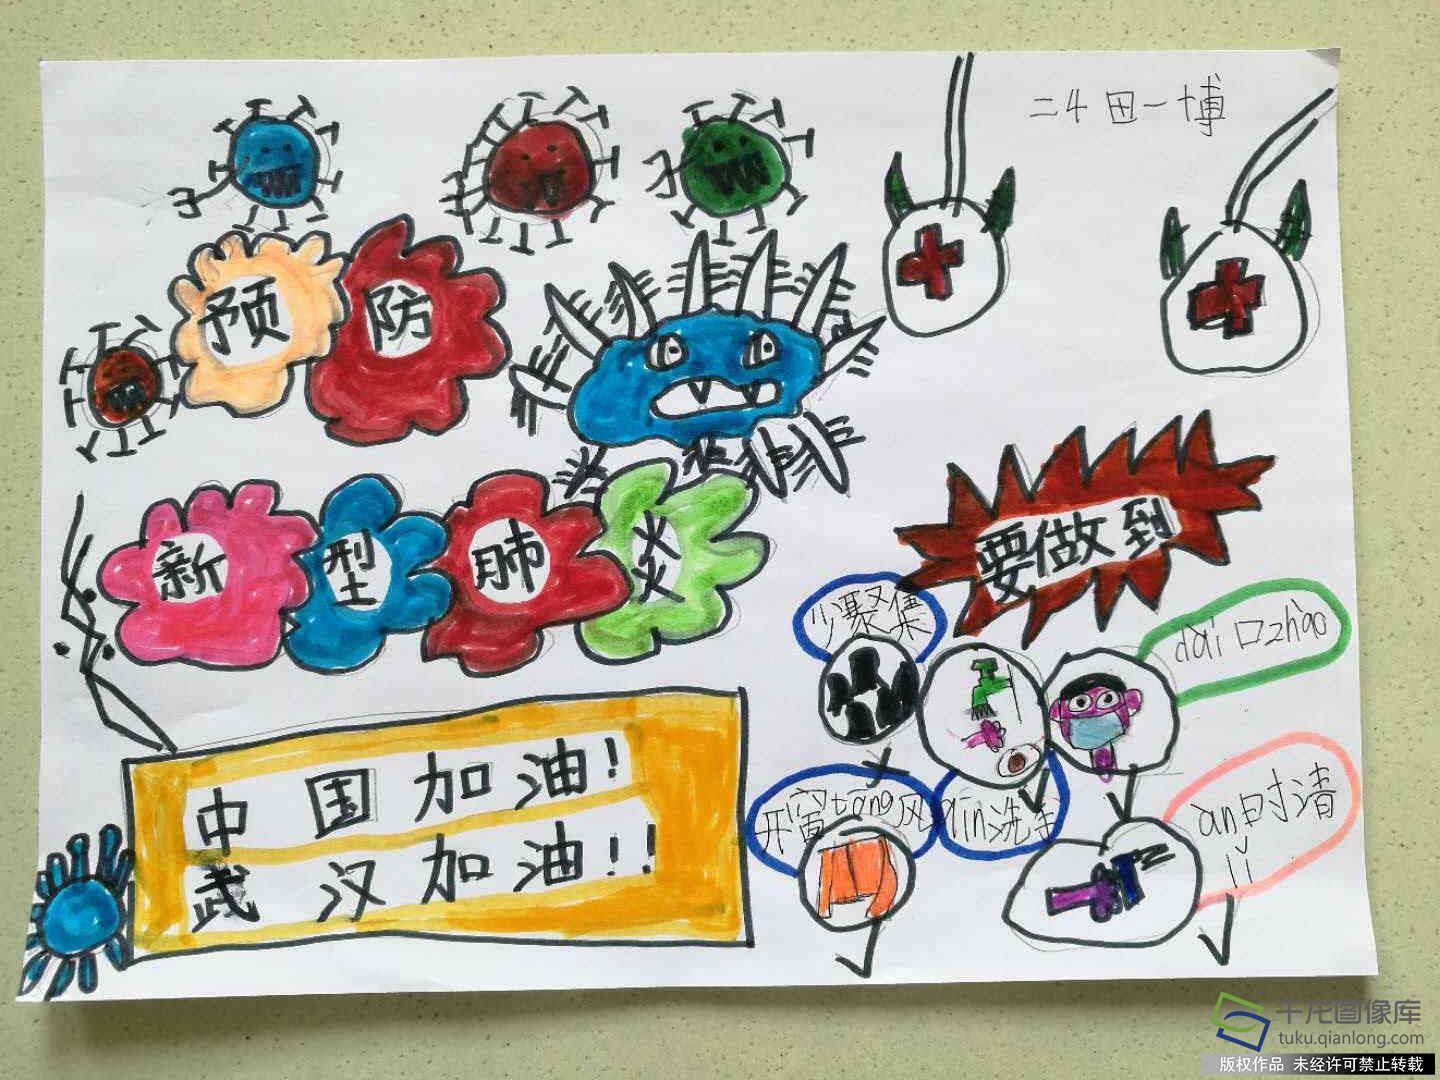 二4 田一博
预防
新型肺炎
要做到
少聚集
dài口zhào
开窗tōng风
qín洗手
àn时清
lǐ
中国加油!
武汉加油!!
千龙图像库
tuku.qianlong.com
版权作品 未经许可禁止转载